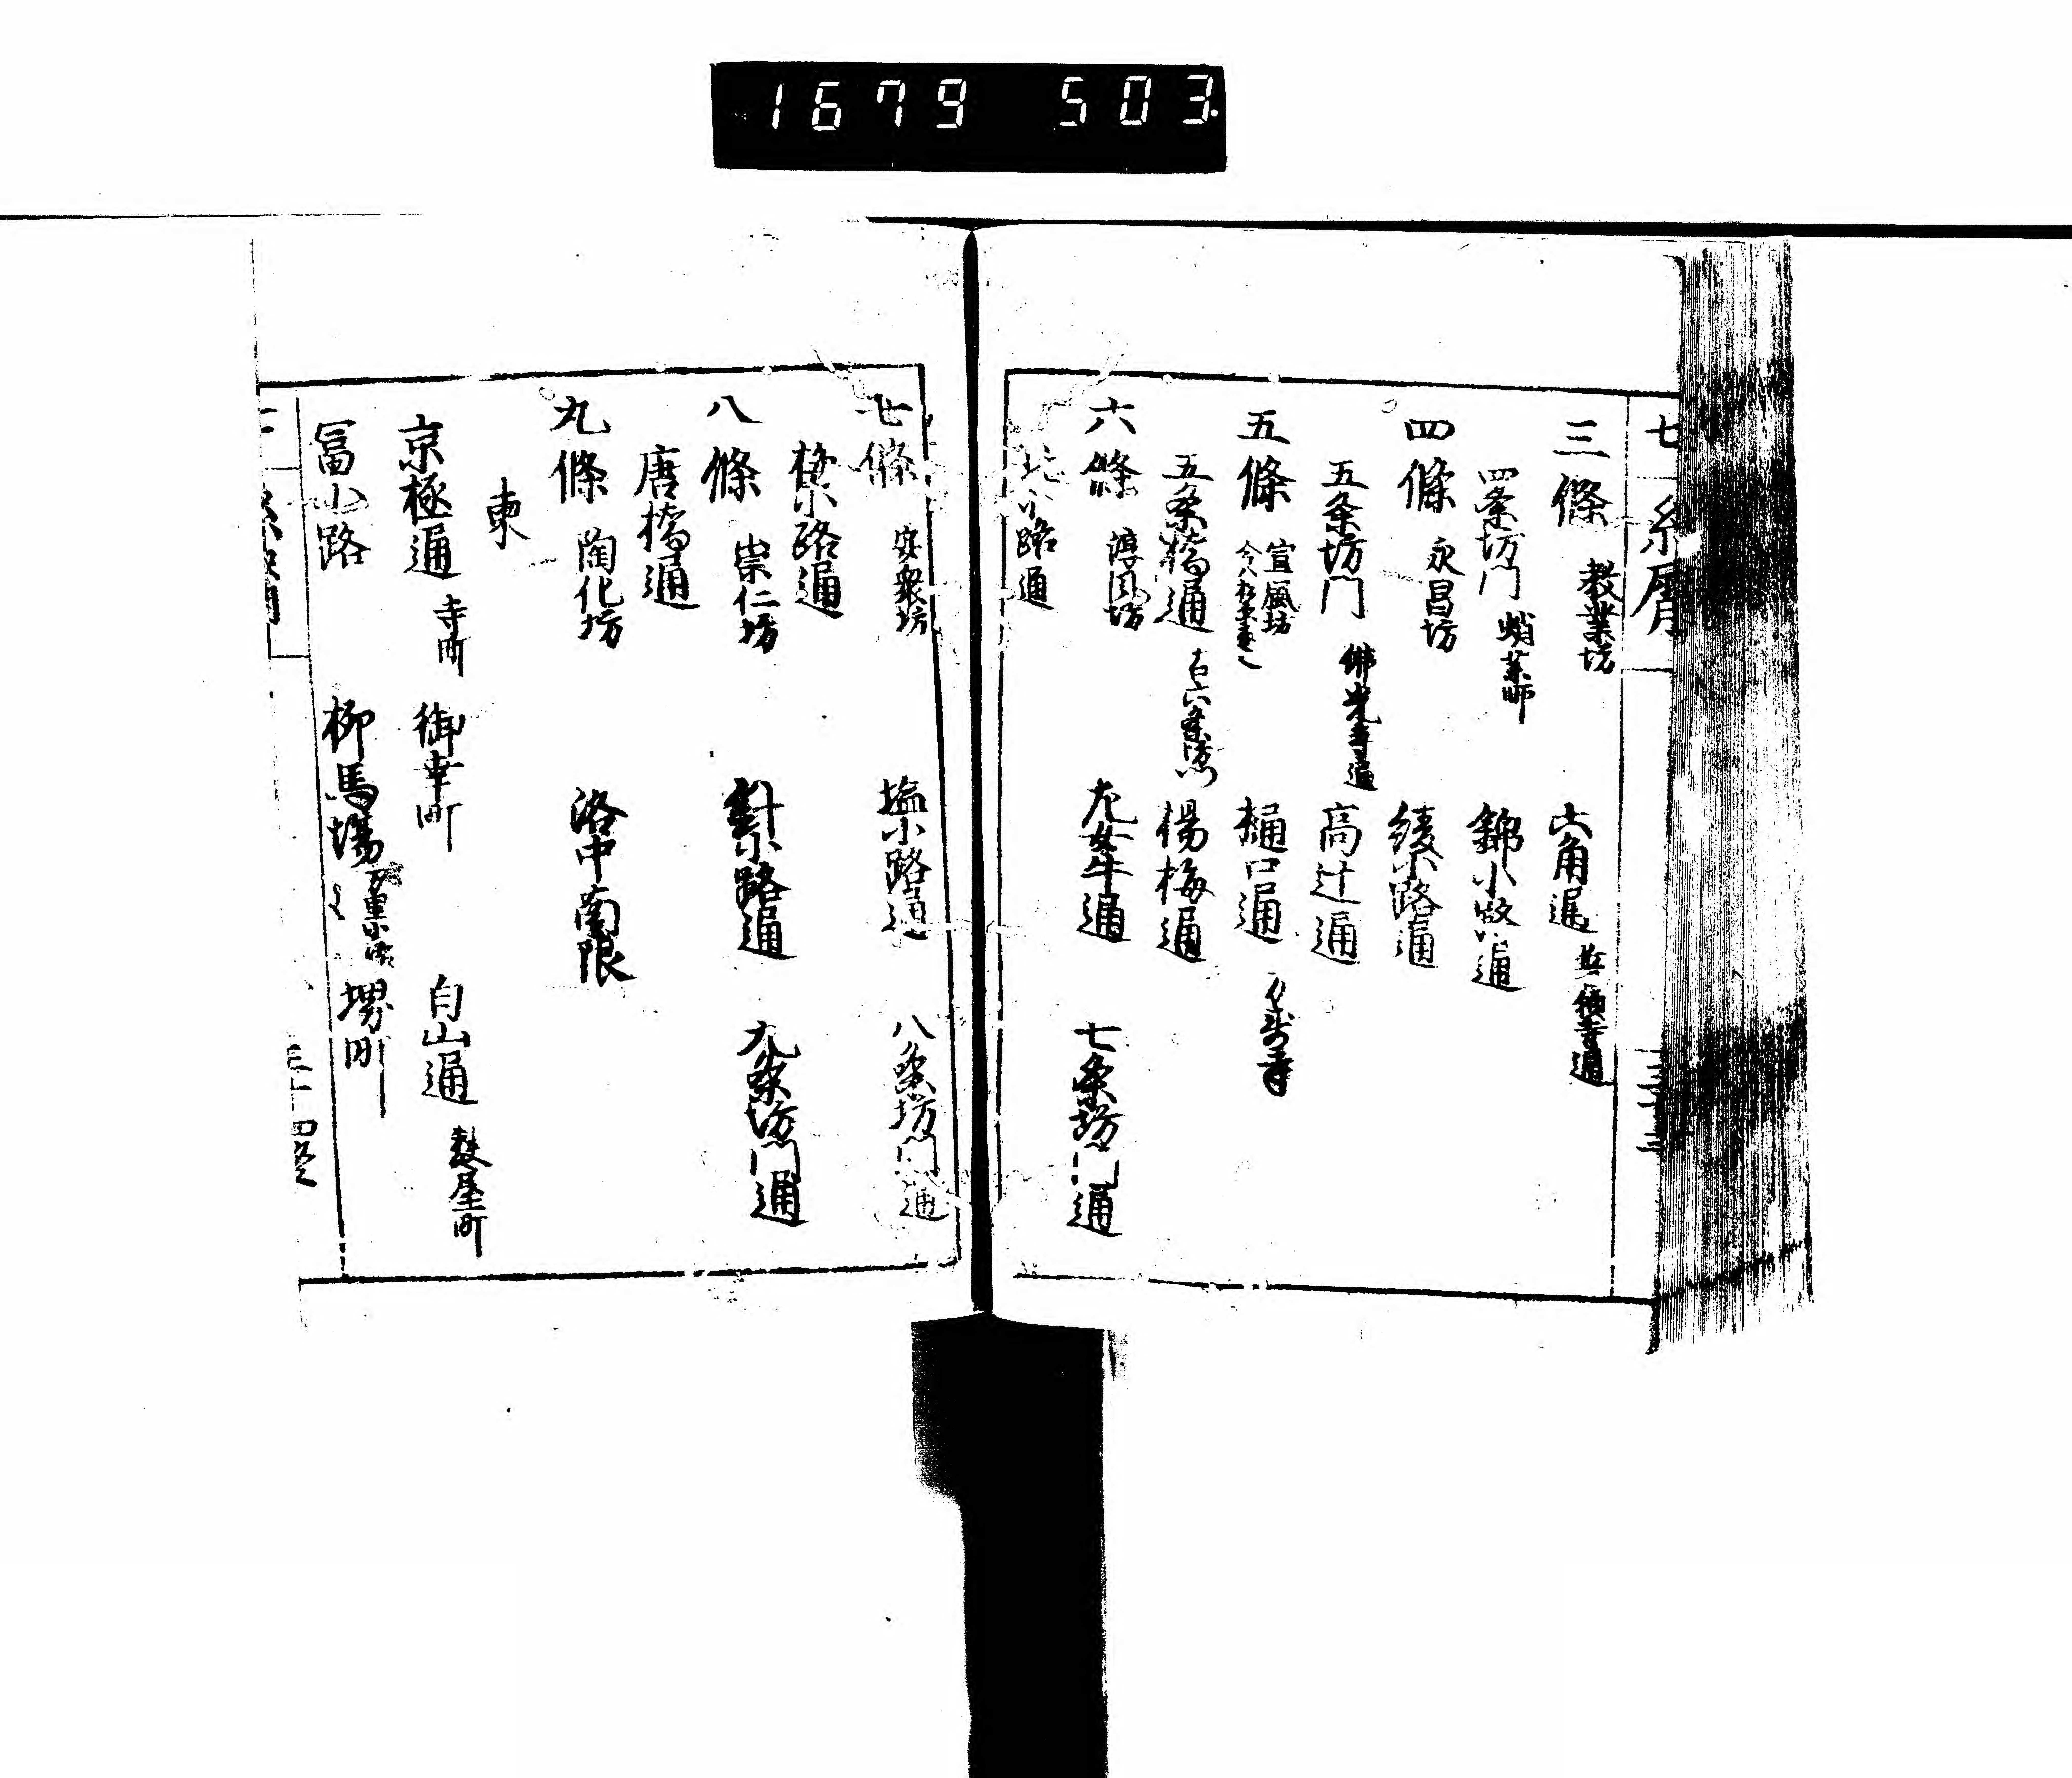 1679 503
三條 教業坊 六角通
四条坊門 蛸薬師 錦小路通
四條 永昌坊 綾小路通
五条坊門 佛光寺通 高辻通
五條 宣風坊 樋口通
五条橋通 楊梅通
六條 淳風坊 左女牛通 七条坊門通
北小路通
七條 安衆坊 塩小路通 八条坊門通
梅小路通
八條 崇仁坊 針小路通 九条坊門通
唐橋通
九條 陶化坊 洛中南限
東
京極通 寺町 御幸町 白山通 麩屋町
冨小路 柳馬場 万里小路 堺町